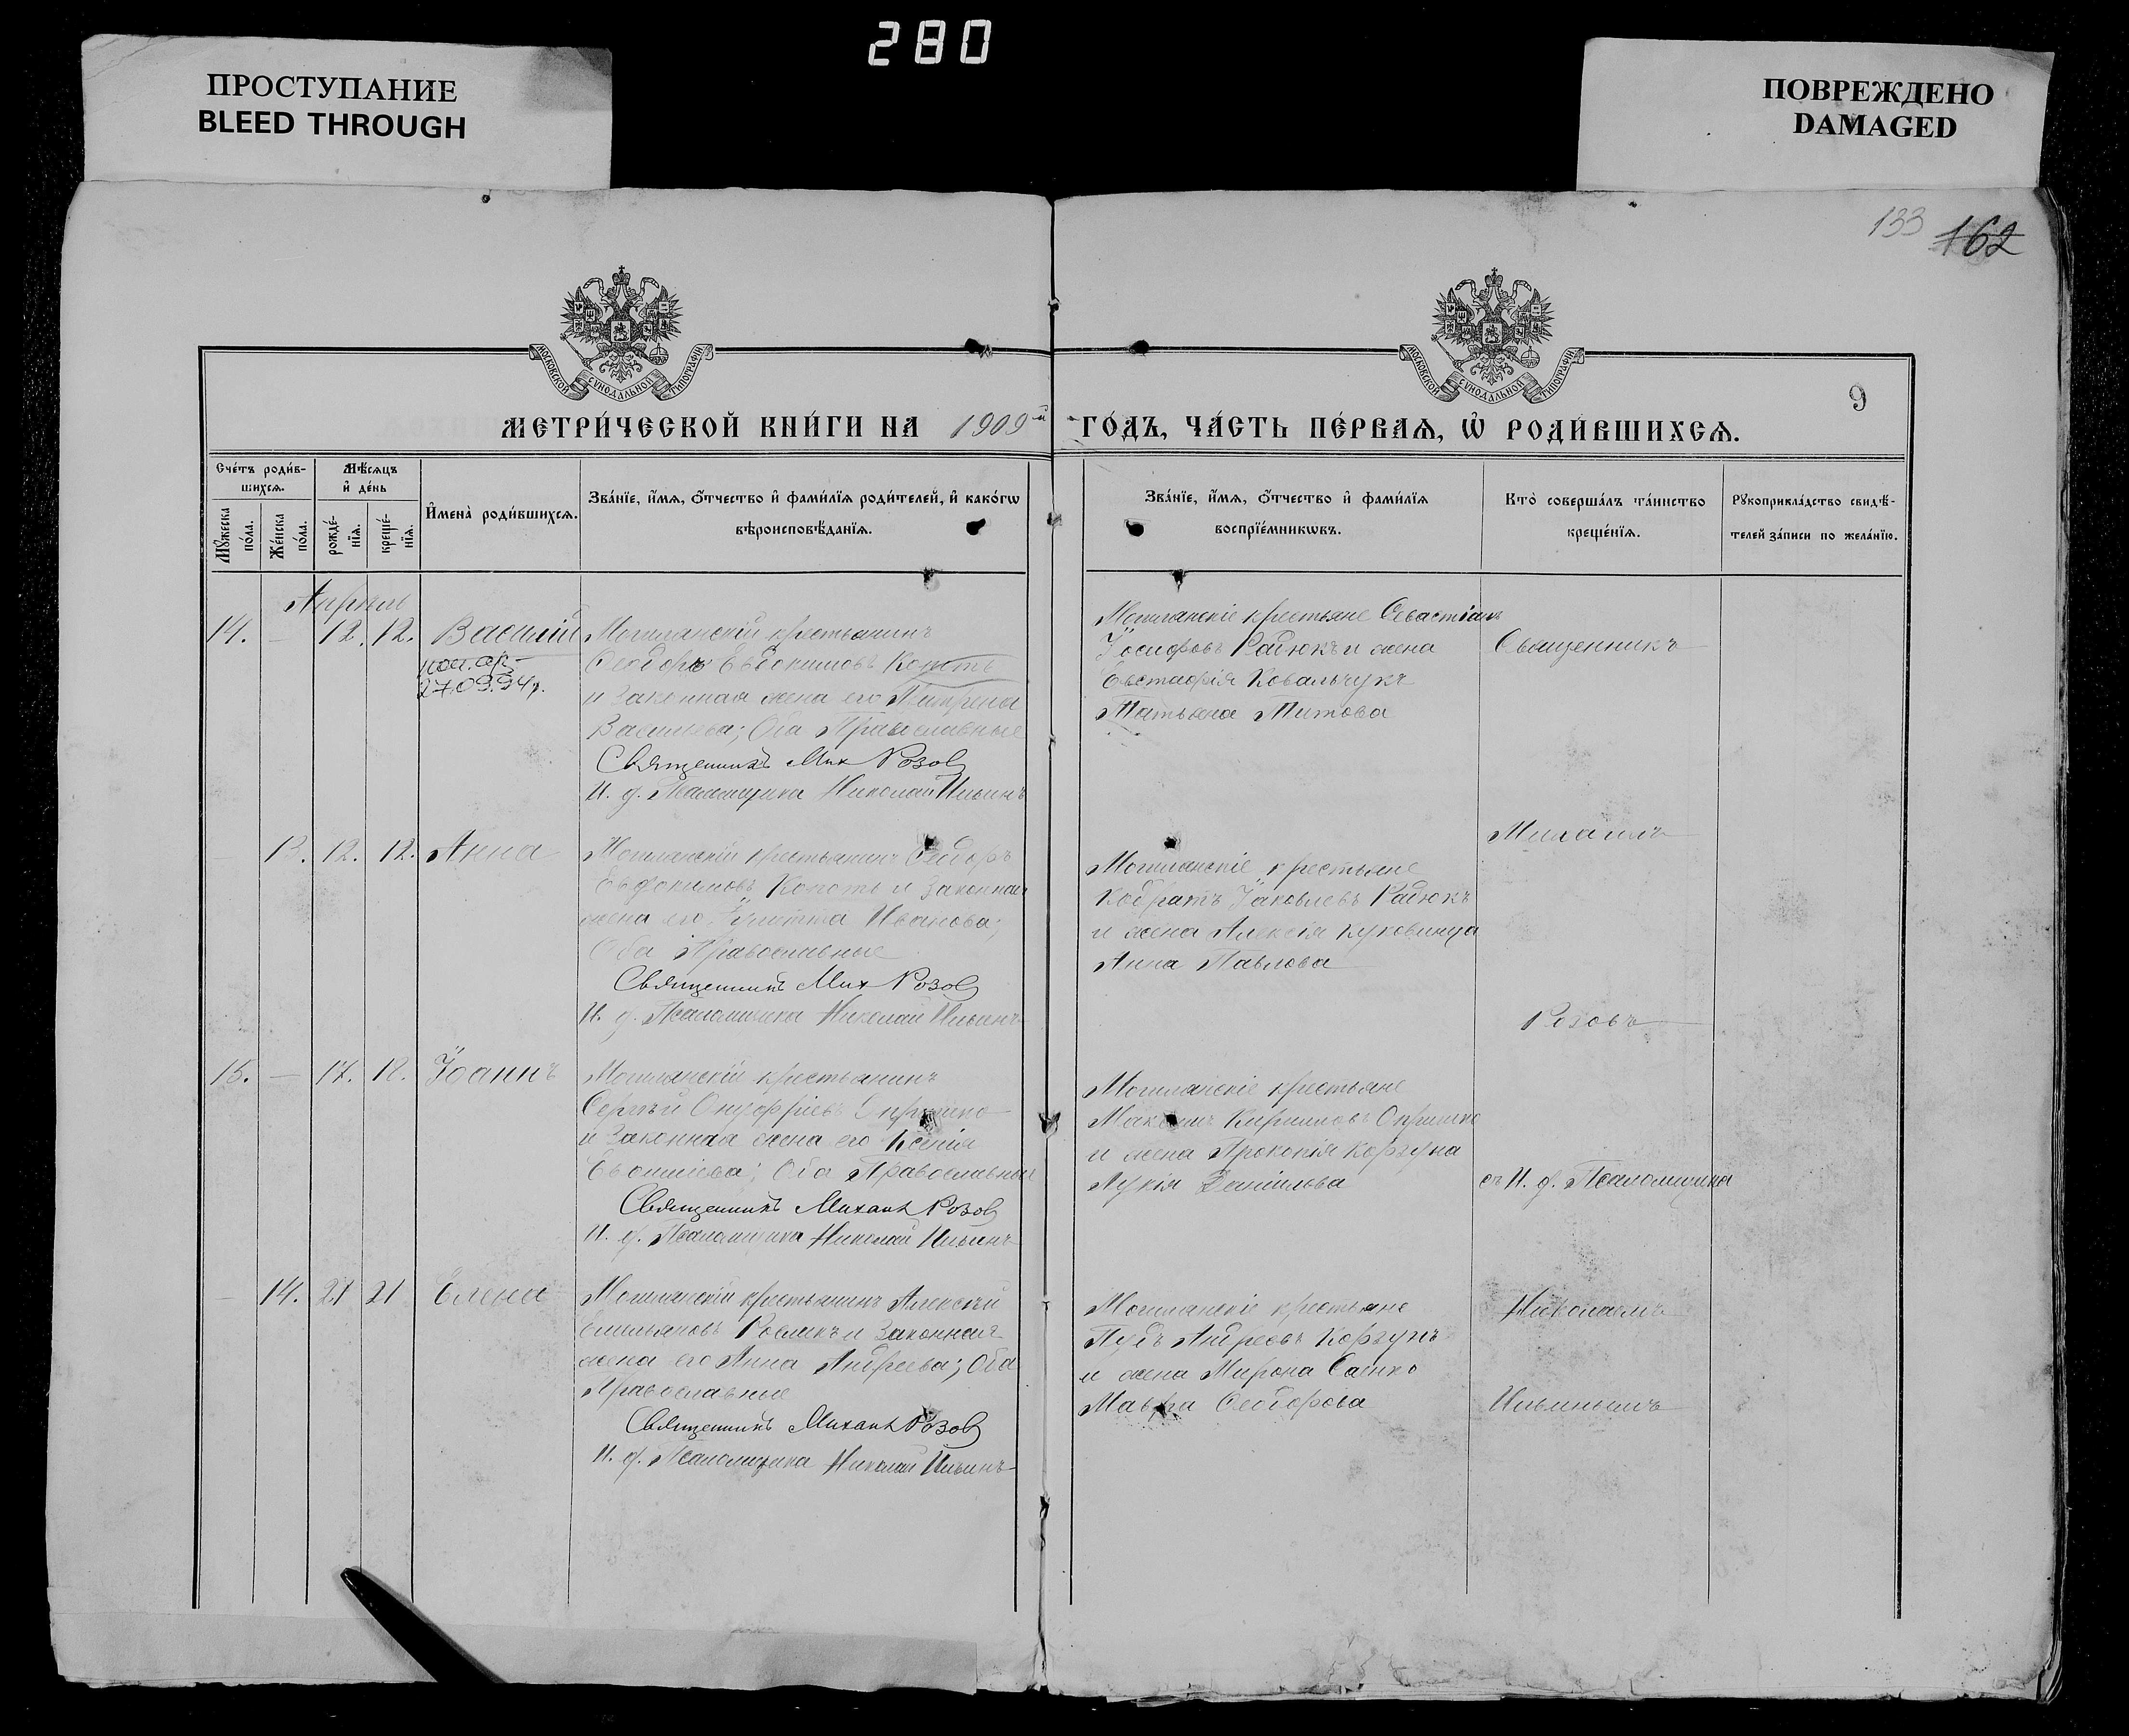 280
ПРОСТУПАНИЕ
BLEED THROUGH
ПОВРЕЖДЕНО
DAMAGED
133 162
МОСКОВСКОЙ СУНОДАЛЬНОЙ ТИПОГРАФІИ
МОСКОВСКОЙ СУНОДАЛЬНОЙ ТИПОГРАФІИ
9
МЕТРИ́ЧЕСКОЙ КНИ́ГИ НА 1909й ГО́ДЪ, ЧА́СТЬ ПЕ́РВАЯ, Ѡ҆ РОДИ́ВШИХСЯ.
Сче́тъ роди́в-
шихсѧ.
Мꙋ́жеска по́ла.
Же́нска по́ла.
Мѣ́сѧцъ
и҆ де́нь
рожде́-
нїѧ.
креще́-
нїѧ.
И҆мена̀ роди́вшихсѧ.
Зва́нїе, и҆́мѧ, ѻ҆́тчество и҆ фами́лїѧ роди́телей, и҆ како́гѡ
вѣроисповѣ́данїѧ.
Зва́нїе, и҆́мѧ, ѻ҆́тчество и҆ фами́лїѧ
воспрїе́мникѡвъ.
Кто̀ соверша́лъ та́инство
креще́нїѧ.
Рꙋкоприкла́дство свидѣ́-
телей за́писи по жела́нїю.
Апрѣль
14. — 12. 12. Василій
27.09.94г.
Могилянскій крестьянинъ
Ѳеодоръ Евдокимовъ Копоть
и законная жена его
Васильева; Оба Православные
Священникъ Мих Розов
И. д. Псаломщика Николай Ильинъ
Могилянскіе крестьяне Севастіанъ
Іосифовъ Радюкъ и жена
Евстафія Ковальчукъ
Татьяна Титова
Священникъ
13. 12. 12. Анна
Могилянскій крестьянинъ Ѳеодоръ
Евдокимовъ Копоть и законная
жена его Іулитта Иванова;
Оба Православные
Священникъ Мих Розов
И. д. Псаломщика Николай Ильинъ
Могилянскіе крестьяне
Кодратъ Іаковлевъ Радюкъ
и жена Алексія Куковица
Анна Павлова
Михаилъ
Розовъ
15. — 17. 18. Іоаннъ
Могилянскій крестьянинъ
Сергѣй Онуфріевъ Опришко
и законная жена его Ксенія
Оба Православные
Священникъ Михаил Розов
И. д. Псаломщика Николай Ильинъ
Могилянскіе крестьяне
Максимъ Кирилловъ Опришко
и жена Прокопія Корзуна
Лукія Даніилова
съ И. д. Псаломщика
— 14. 21 21 Елена
Могилянскій крестьянинъ Алексѣй
Емельяновъ и законная
жена его Анна Андреева; Оба
Православные
Священникъ Михаил Розов
И. д. Псаломщика Николай Ильинъ
Могилянскіе крестьяне
Пудъ Андреевъ Корзунъ
и жена Мирона Саенко
Мавра Ѳеодорова
Николаемъ
Ильинымъ